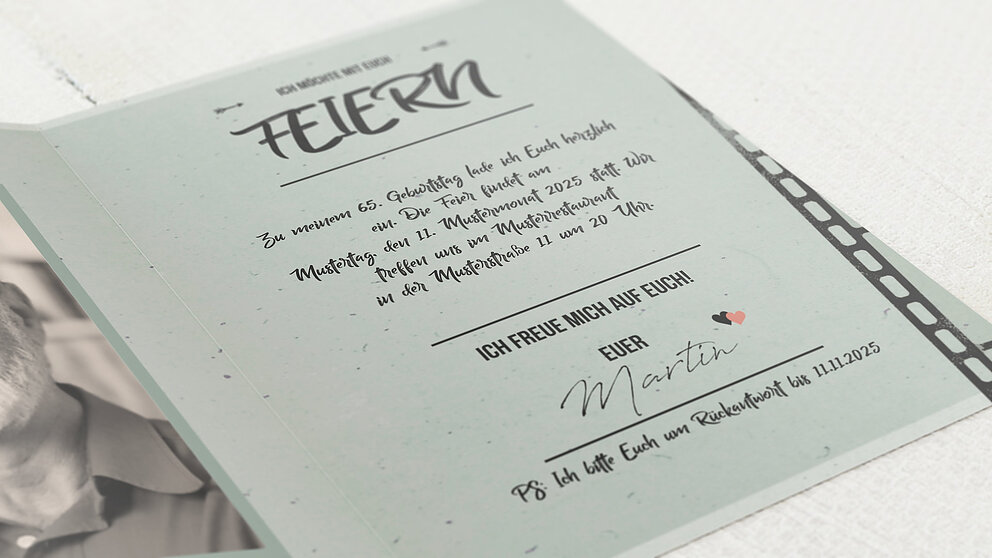 ICH MÖCHTE MIT EUCH
FEIERN
Zu meinem 65. Geburtstag lade ich Euch herzlich
ein. Die Feier findet am
Mustertag, den 11. Mustermonat 2025 statt. Wir
treffen uns im Musterrestaurant
in der Musterstraße 11 um 20 Uhr.
ICH FREUE MICH AUF EUCH!
EUER
Martin
PS: Ich bitte Euch um Rückantwort bis 11.11.2025